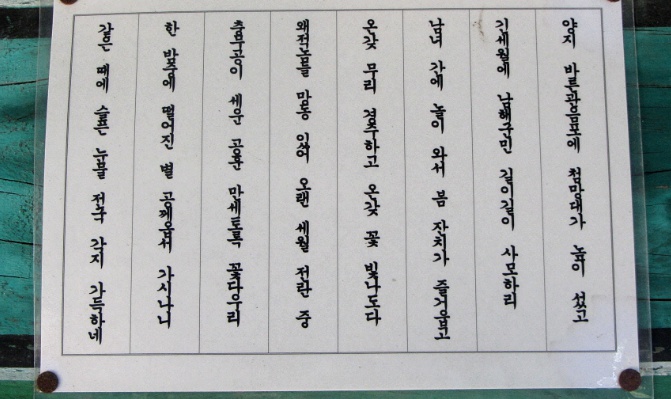 양지 바른 관음포에 첨망대가 높이 섰고
긴 세월에 남해군민 길이길이 사모하리
남녀 간에 놀이 와서 봄 잔치가 즐거웁고
온갖 무리 경주하고 온갖 꽃 빛나도다
있어 오랜 세월 전란 중
충무공이 세운 공훈 만세토록 꽃다우리
한 밤중에 떨어진 별 공께옵서 가시나니
같은 때에 슬픈 눈물 전국 각지 가득하네